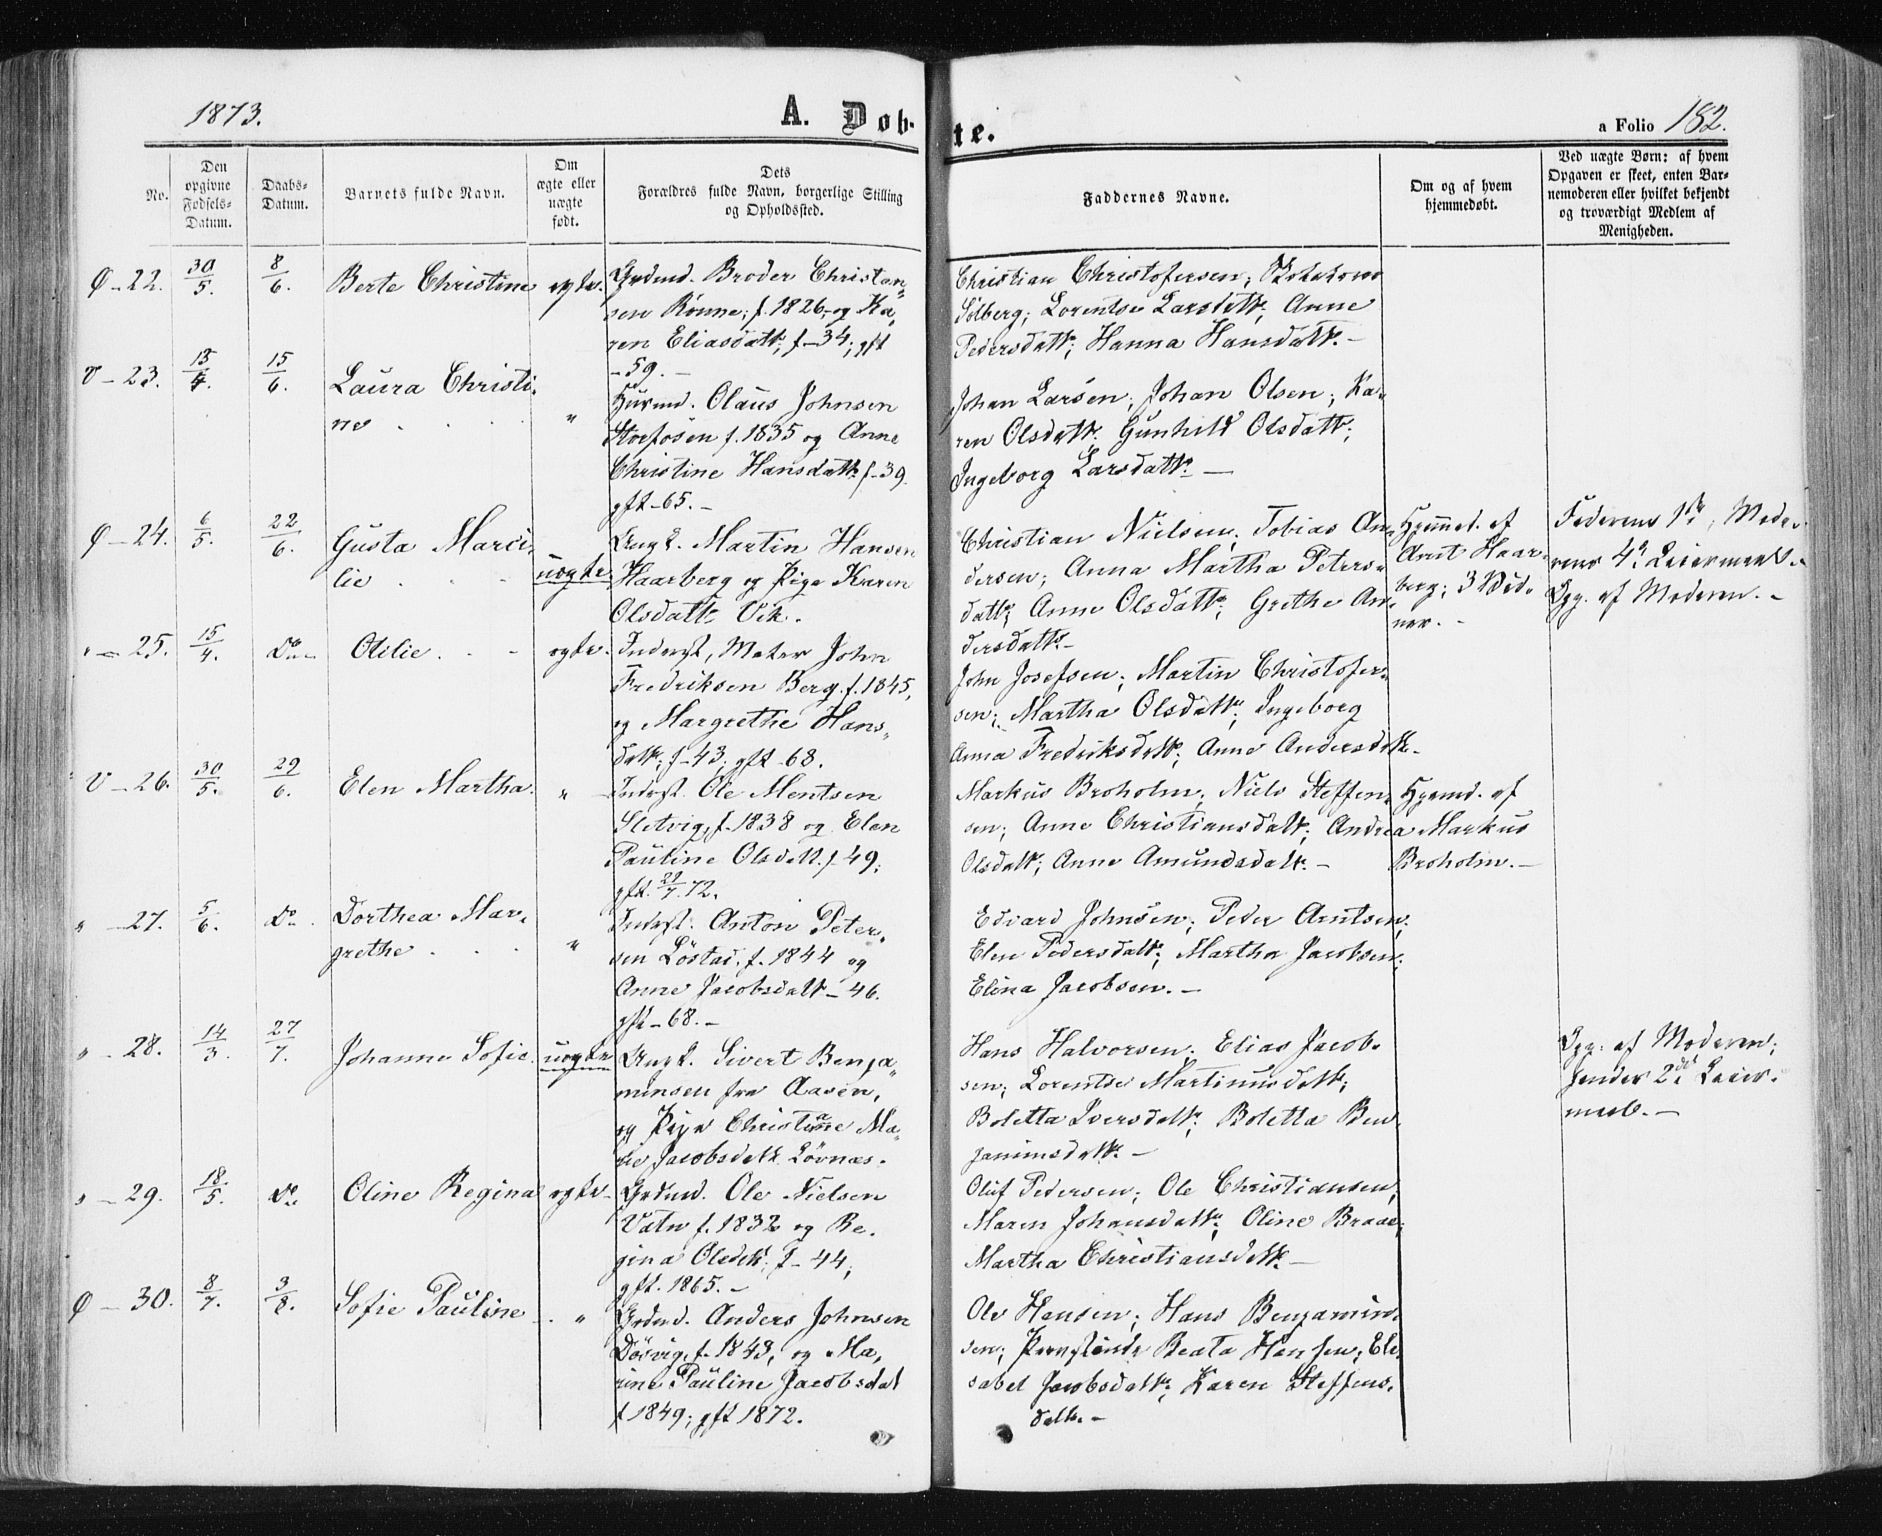 1873.
A. Døb-
te.
a Folio 182.
No.
Den opgivne Fødsels-Datum.
Daabs-Datum.
Barnets fulde Navn.
Om ægte eller uægte født.
Dets
Forældres fulde Navn, borgerlige Stilling
og Opholdssted.
Faddernes Navne.
Om og af hvem
hjemmedøbt.
Ved uægte Børn: af hvem
Opgaven er skeet, enten Bar-
nemoderen eller hvilket bekjendt
og troværdigt Medlem af
Menigheden.
Ø - 22. 30/5. 8/6. Berte Christine ægte. Grdmd. Broder Christian-
sen Rønne; f. 1826, og Ka-
ren Eliasdatt; f - 34; gft
- 59. -
Christian Christofersen;
Solberg; Lorentse Larsdatt; Anne
Pedersdatt; Hanna Hansdatt. -
V - 23. 13/4. 15/6. Laura Christi-
ne . . . "
Husmd. Olaus Johnsen
Storfosen f. 1835 og Anne
Christine Hansdatt. f - 39.
gft - 65. -
Johan Larsen; Johan Olsen; Ka-
ren Olsdatt; Gunhild Olsdatt;
Ingeborg Larsdatt. -
Ø - 24. 6/5. 22/6. Gusta Marci-
lie . . uægte.
Ungk. Martin Hansen
Haarberg og Pige Karen
Olsdatt Vik.
Christian Nielsen; Tobias An-
dersen; Anna Martha Peters-
datt; Anne Olsdatt; Grethe An-
dersdatt. -
Hjemmed. af
Arnt Haar-
berg; 3 Vid-
ner. -
Faderens 1ste, Mode-
rens 4de Leiermaal. -
Opg. af Moderen. -
" - 25. 15/4. Do - Otilie . - ægte. Inderst, Maler John
Fredriksen Berg. f. 1845,
og Margrethe Hans-
datt; f - 43; gft - 68.
John Josefsen; Martin Christofer-
sen; Martha Olsdatt; Ingeborg
Anna Fredriksdatt; Anne Andersdatt. -
V - 26. 30/5. 29/6. Elen Martha. "
Inderst. Ole Mentsen
Sletvig, f. 1838 og Elen
Pauline Olsdatt. f. 49;
gft. 29/7. 72.
Markus Broholm; Niels Steffen-
sen; Anne Christiansdatt; Andrea
Olsdatt; Anne Amundsdatt. -
Hjemmd. af
Markus
Broholm. -
" - 27. 5/6. Do. Dorthea Mar-
grethe . . "
Inderst. Anton Peter-
sen Löstad; f. 1844 og
Anne Jacobsdatt - 46.
gft - 68. -
Edvard Johnsen; Peder Arntsen;
Elen Pedersdatt; Martha Jacobsen;
Elina Jacobsen. -
" - 28. 14/3. 27/7. Johanne Sofie. uægte
Ungk. Sivert Benja-
minsen fra Aasen,
og Pige Christiane Ma-
rie Jacobsdatt Lövnæs.
Hans Halvorsen; Elias Jacob-
sen; Lorentse Martinusdatt;
Boletta Iversdatt; Boletta Ben-
jaminsdatt. -
Opg. af Moderen;
2det Leier-
maal. -
" - 29. 18/5. Do. Oline Regina ægte. Grdmd. Ole Nielsen
Vatn f. 1832 og Re-
gina Olsdatt; f - 44;
gft. 1865. -
Oluf Pedersen; Ole Christiansen;
Maren Johansdatt; Oline Braae;
Martha Christiansdatt. -
Ø - 30. 8/7. 3/8. Sofie Pauline . "
Grdmd. Anders Johnsen
Dösvig, f. 1843, og Ma-
rine Pauline Jacobsdat
f 1849; gft 1872.
Ole Hansen; Hans Benjamin-
sen; Beata Hansen; Ele-
sabet Jacobsdatt; Karen Steffens-
datt. -